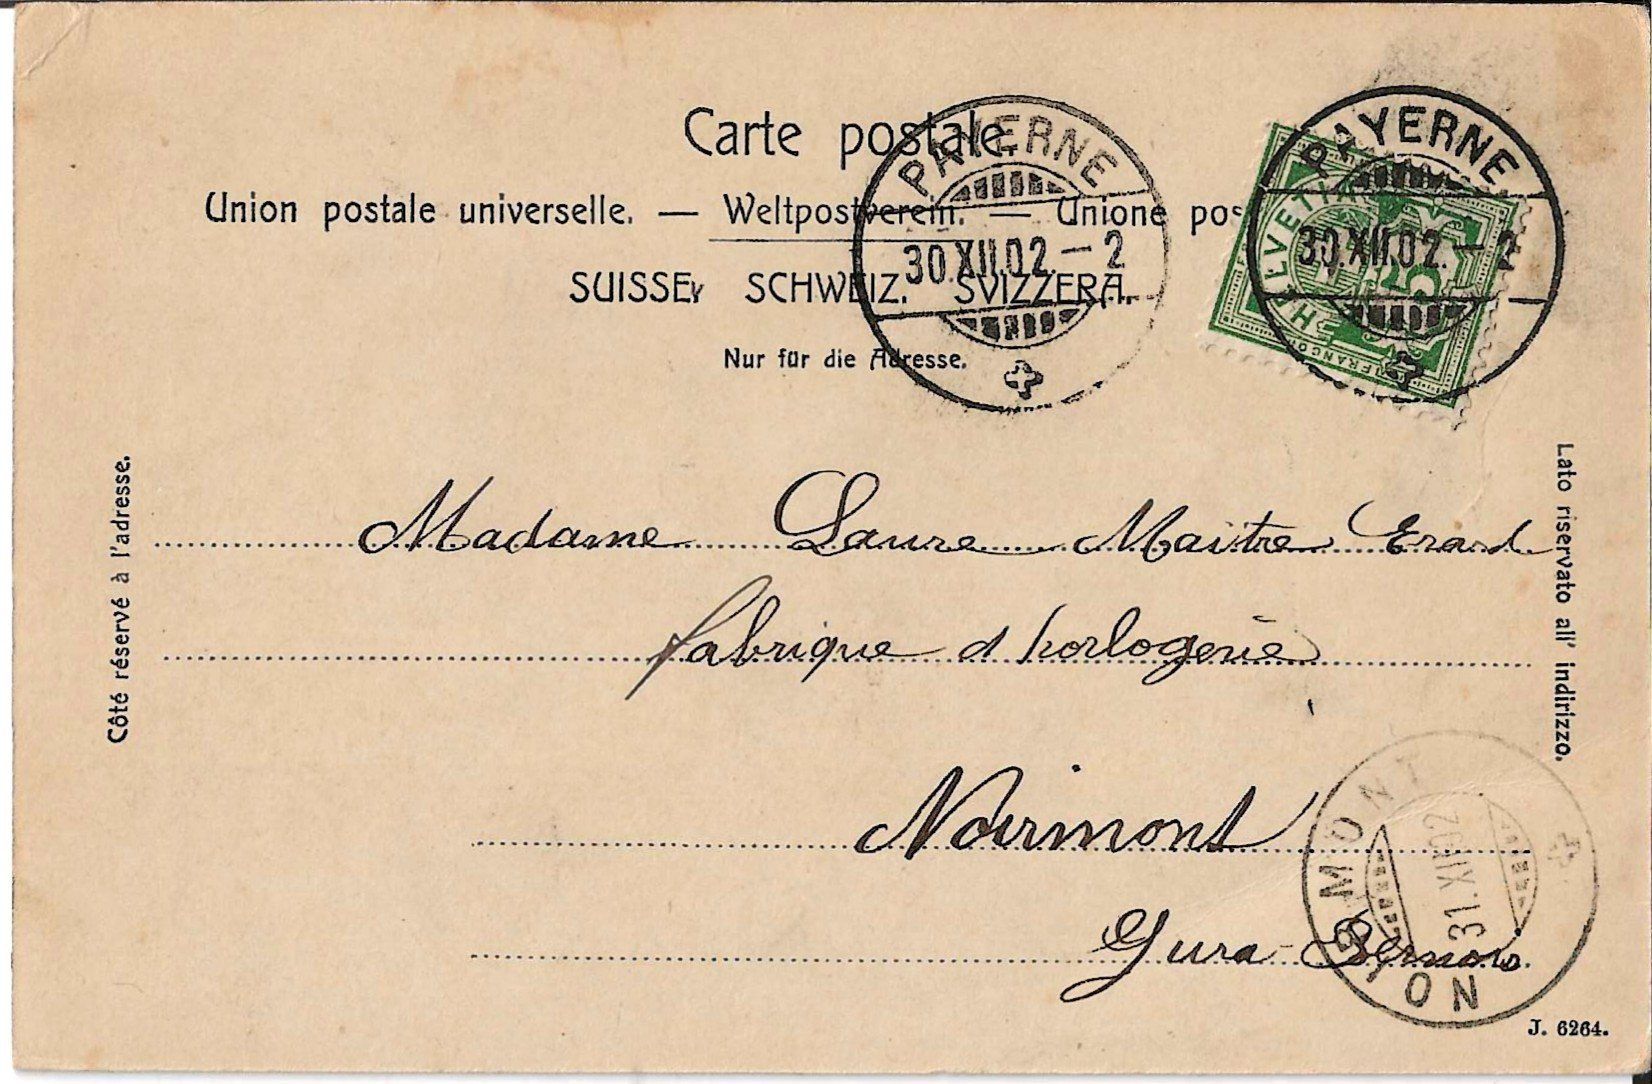 Carte postale.
Union postale universelle. — Weltpostverein. — Unione pos
SUISSE, SCHWEIZ. SVIZZERA.
Nur für die Adresse.
PAYERNE
30.XII.02.–2
PAYERNE
30.XII.02.–2
HELVETIA
FRANCO
5
Côté réservé à l'adresse.
Lato riservato all' indirizzo.
Madame Laure Maitre Erard
fabrique d horlogerie
Noirmont
Jura-Bernois
NOIRMONT
31.XII.02
J. 6264.